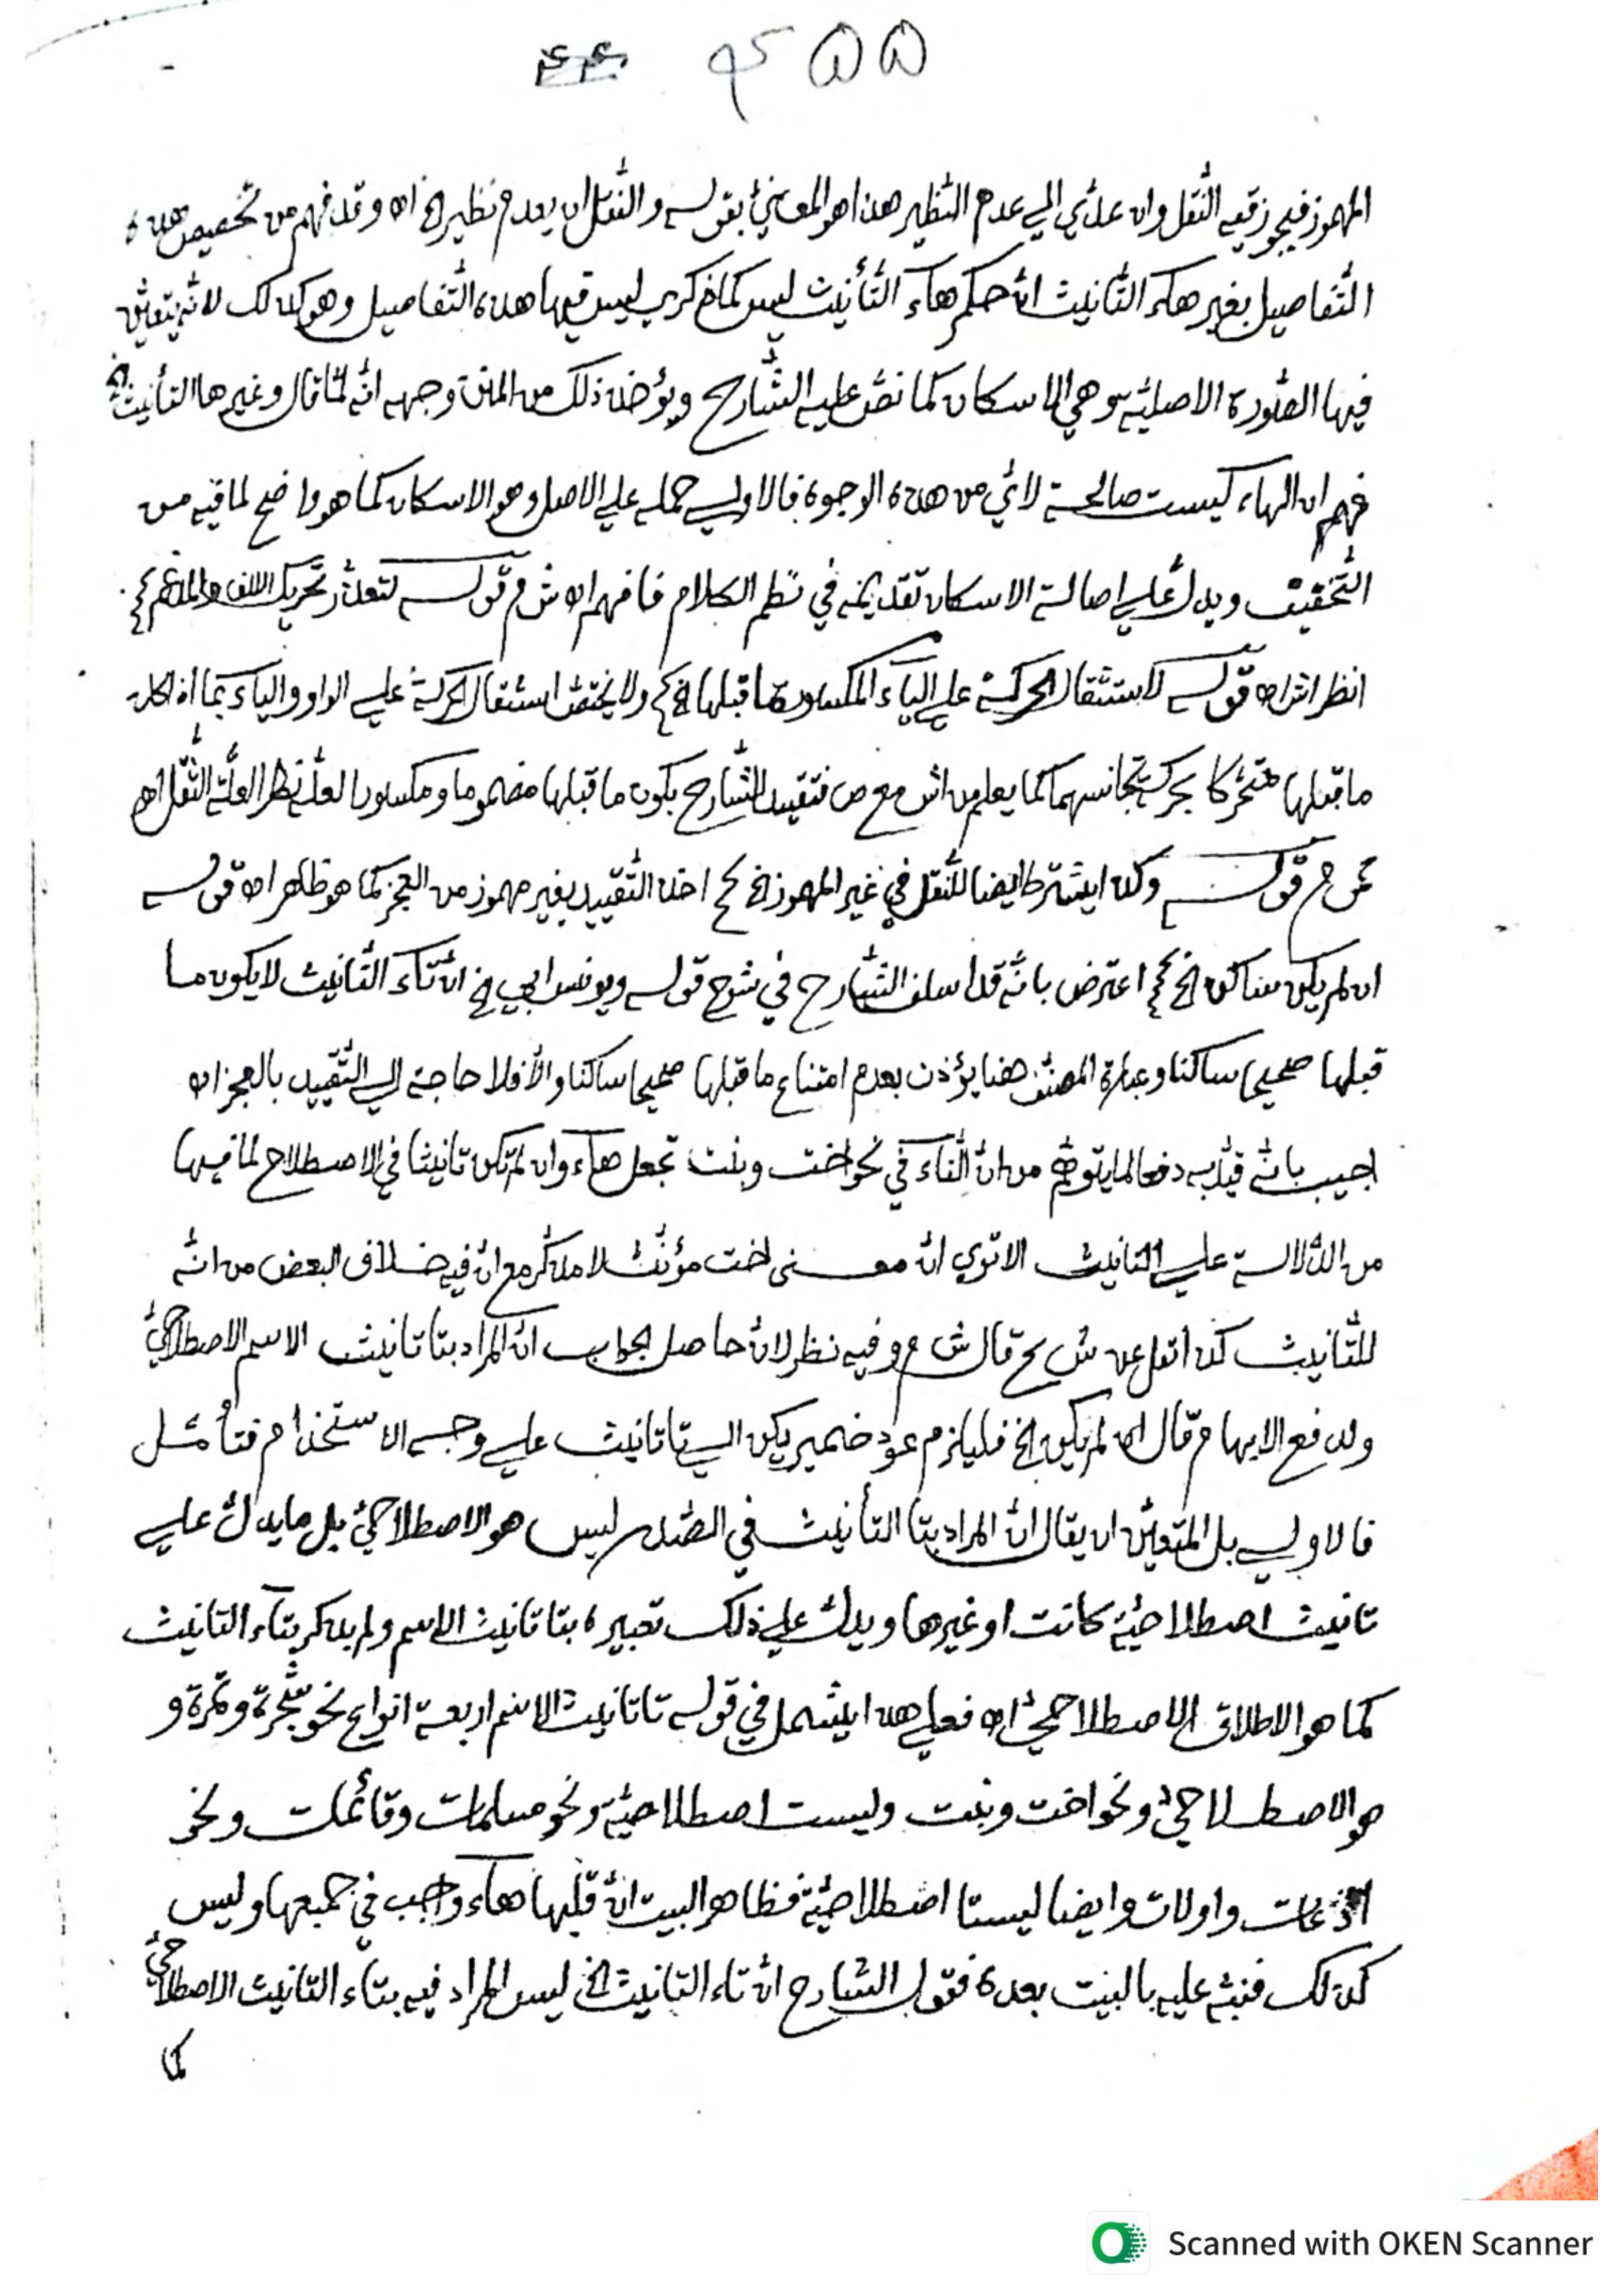 ٤٥٥
المهموز فيجوز فيه النّقل وان عدّي الي عدم النّظير هذا هو المعنيّ بقوله والنّقل ان يعدم نظير الخ اه وقد فهم من تخصيص هذه
التّفاصيل بغير هاء التّانيث انّ حكم هاء التّأنيث ليس كما ذكر بل ليس فيها هذه التّفاصيل وهو كذلك لانّه يتعيّن
فيها الصّورة الاصليّة وهي الاسكان كما نصّ عليه الشّارح ويؤخذ ذلك من المتن وجهه انّه لمّا قال وغير ها التأنيث الخ
فهم ان الهاء ليست صالحة لايّ من هذه الوجوه فالاولي حمله علي الاصل وهو الاسكان كما هو واضح لما فيه من
التّخفيف ويدلّ علي اصالة الاسكان تقديمه في نظم الكلام فافهم اه ش م قوله لتعذّر تحريك الالف والمدغم
انظر اش اه قوله لاستثقال الحركة علي الياء المكسور ما قبلها الخ ولا يختصّ استثقال الحركة علي الواو والياء بما اذا كان
ما قبلها متحرّكا بحركة تجانسهما كما يعلم من اش مع ص فتقييد الشّارح بكون ما قبلها مضموما ومكسورا لعلّه نظر العلّة الثّقل اه
م قوله وكذا يشترط ايضا للنّقل في غير المهموز الخ اخذ التّقييد بغير مهموز من العجز كما هو ظاهر اه قوله
ان لم يكن ساكن الخ اعترض بانّه قد اسلف الشّارح في شرح قوله ويونس ابي الخ انّ تاء التّانيث لا يكون ما
قبلها صحيحا ساكنا وعبارة المصنّف هنا يؤذن بعدم امتناع ما قبلها صحيحا ساكنا والّا فلا حاجة الي التّقييد بالعجز اه
اجيب بانّه قيّد به دفعا لما يتوهّم من انّ التّاء في نحو اخت وبنت تجعل هاء وان لم تكن تانيثا في الاصطلاح لما فيها
من الدّلالة علي التّانيث الا تري انّ معنى اخت مؤنّث لا مذكّر مع انّ فيه خلاف البعض من انّه
للتّانيث كذا نقل عن ش ح قال ش م وفيه نظر لانّ حاصل الجواب انّ المراد بتا تانيث الاسم الاصطلاحيّ
ولدفع الايهام قال ان لم يكن الخ فليلزم عود ضمير يكن الي تا تانيث علي وجه الاستخدام فتأمّل
فالاولي بل المتعيّن ان يقال انّ المراد بتا التأنيث في الصّدر ليس هو الاصطلاحيّ بل ما يدلّ علي
تانيث اصطلاحيّة كانت او غيرها ويدلّ علي ذلك تعبيره بتا تانيث الاسم ولم يذكر بتاء التانيث
كما هو الاطلاق الاصطلاحيّ اه فعلي هذا يشمل في قوله تا تانيث الاسم اربعة انواع نحو شجرة وتمرة و
هو الاصطلاحيّ ونحو اخت وبنت وليست اصطلاحيّة ونحو مسلمات وقائمات ونحو
اذرعات واولات وايضا ليستا اصطلاحيّة فظاهر البيت انّ قلبها هاء واجب في جميعها وليس
كذلك فنبّه عليه بالبيت بعده فقول الشارح انّ تاء التانيث الخ ليس المراد فيه بتاء التانيث الاصطلاحيّ
كما
Scanned with OKEN Scanner